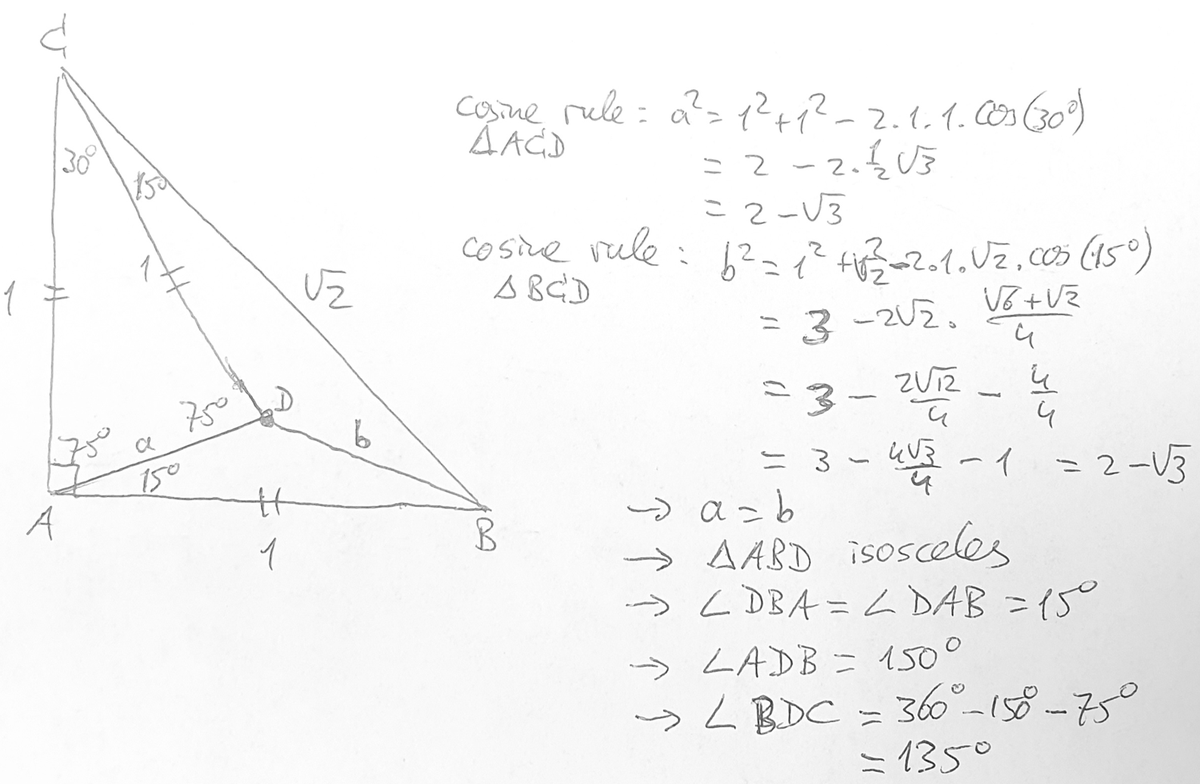 C
30°
15°
1
1
√2
75°
D
75°
a
b
15°
A
B
1
cosine rule : a² = 1² + 1² − 2.1.1. cos(30°)
ΔACD
= 2 − 2.½√3
= 2 − √3
cosine rule : b² = 1² + √2² − 2.1.√2. cos(15°)
ΔBCD
= 3 − 2√2. (√6+√2)/4
= 3 − 2√12/4 − 4/4
= 3 − 4√3/4 − 1 = 2 − √3
→ a = b
→ ΔABD isosceles
→ ∠DBA = ∠DAB = 15°
→ ∠ADB = 150°
→ ∠BDC = 360° − 150° − 75°
= 135°